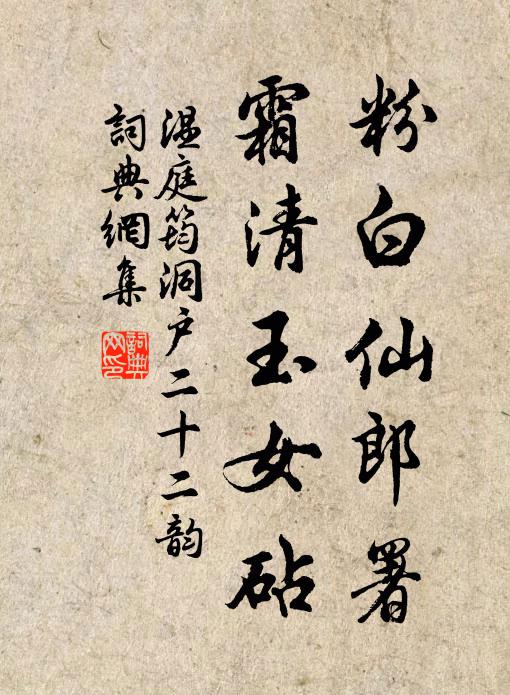 粉白仙郎署
霜清玉女砧
温庭筠洞户二十二韵
詞典網集
詞典網印